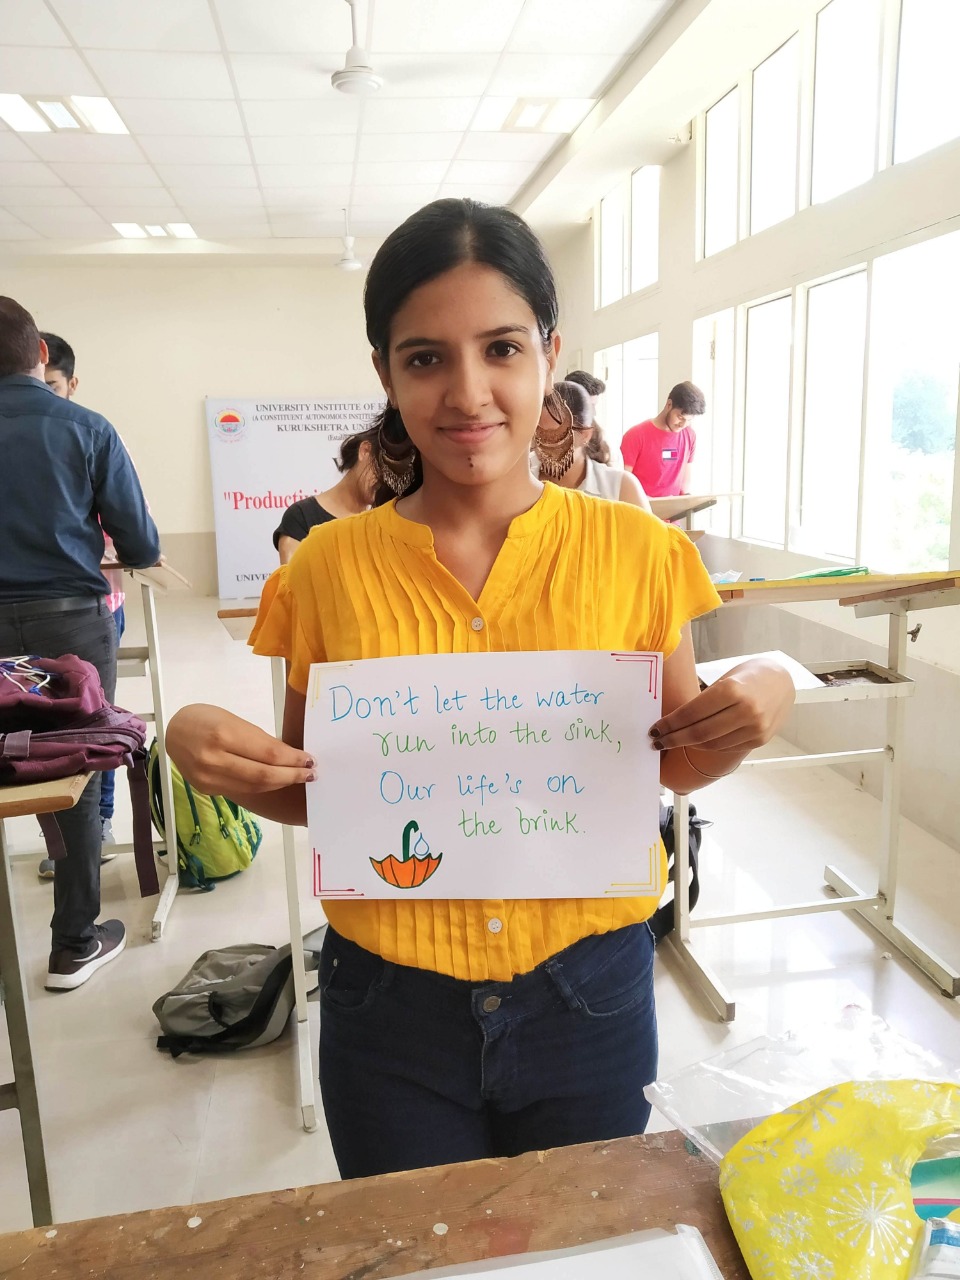 UNIVERSITY INSTITUTE OF
(A CONSTITUENT AUTONOMOUS
KURUKSHETRA
"Producti
Don't let the water
run into the sink,
Our life's on
the brink.